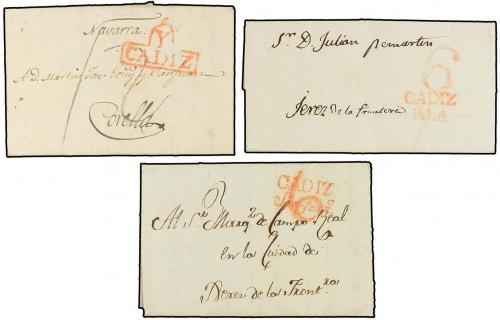 Navarra.
Y
CADIZ
A D. Martin Jose
Corella
Sr. D. Julian Pemartin
6
CADIZ
ISLA
Jerez de la frontera
CADIZ
Al Sr. Marqs. de Campo Real
en la Ciudad de
Xerez de la Frontra.